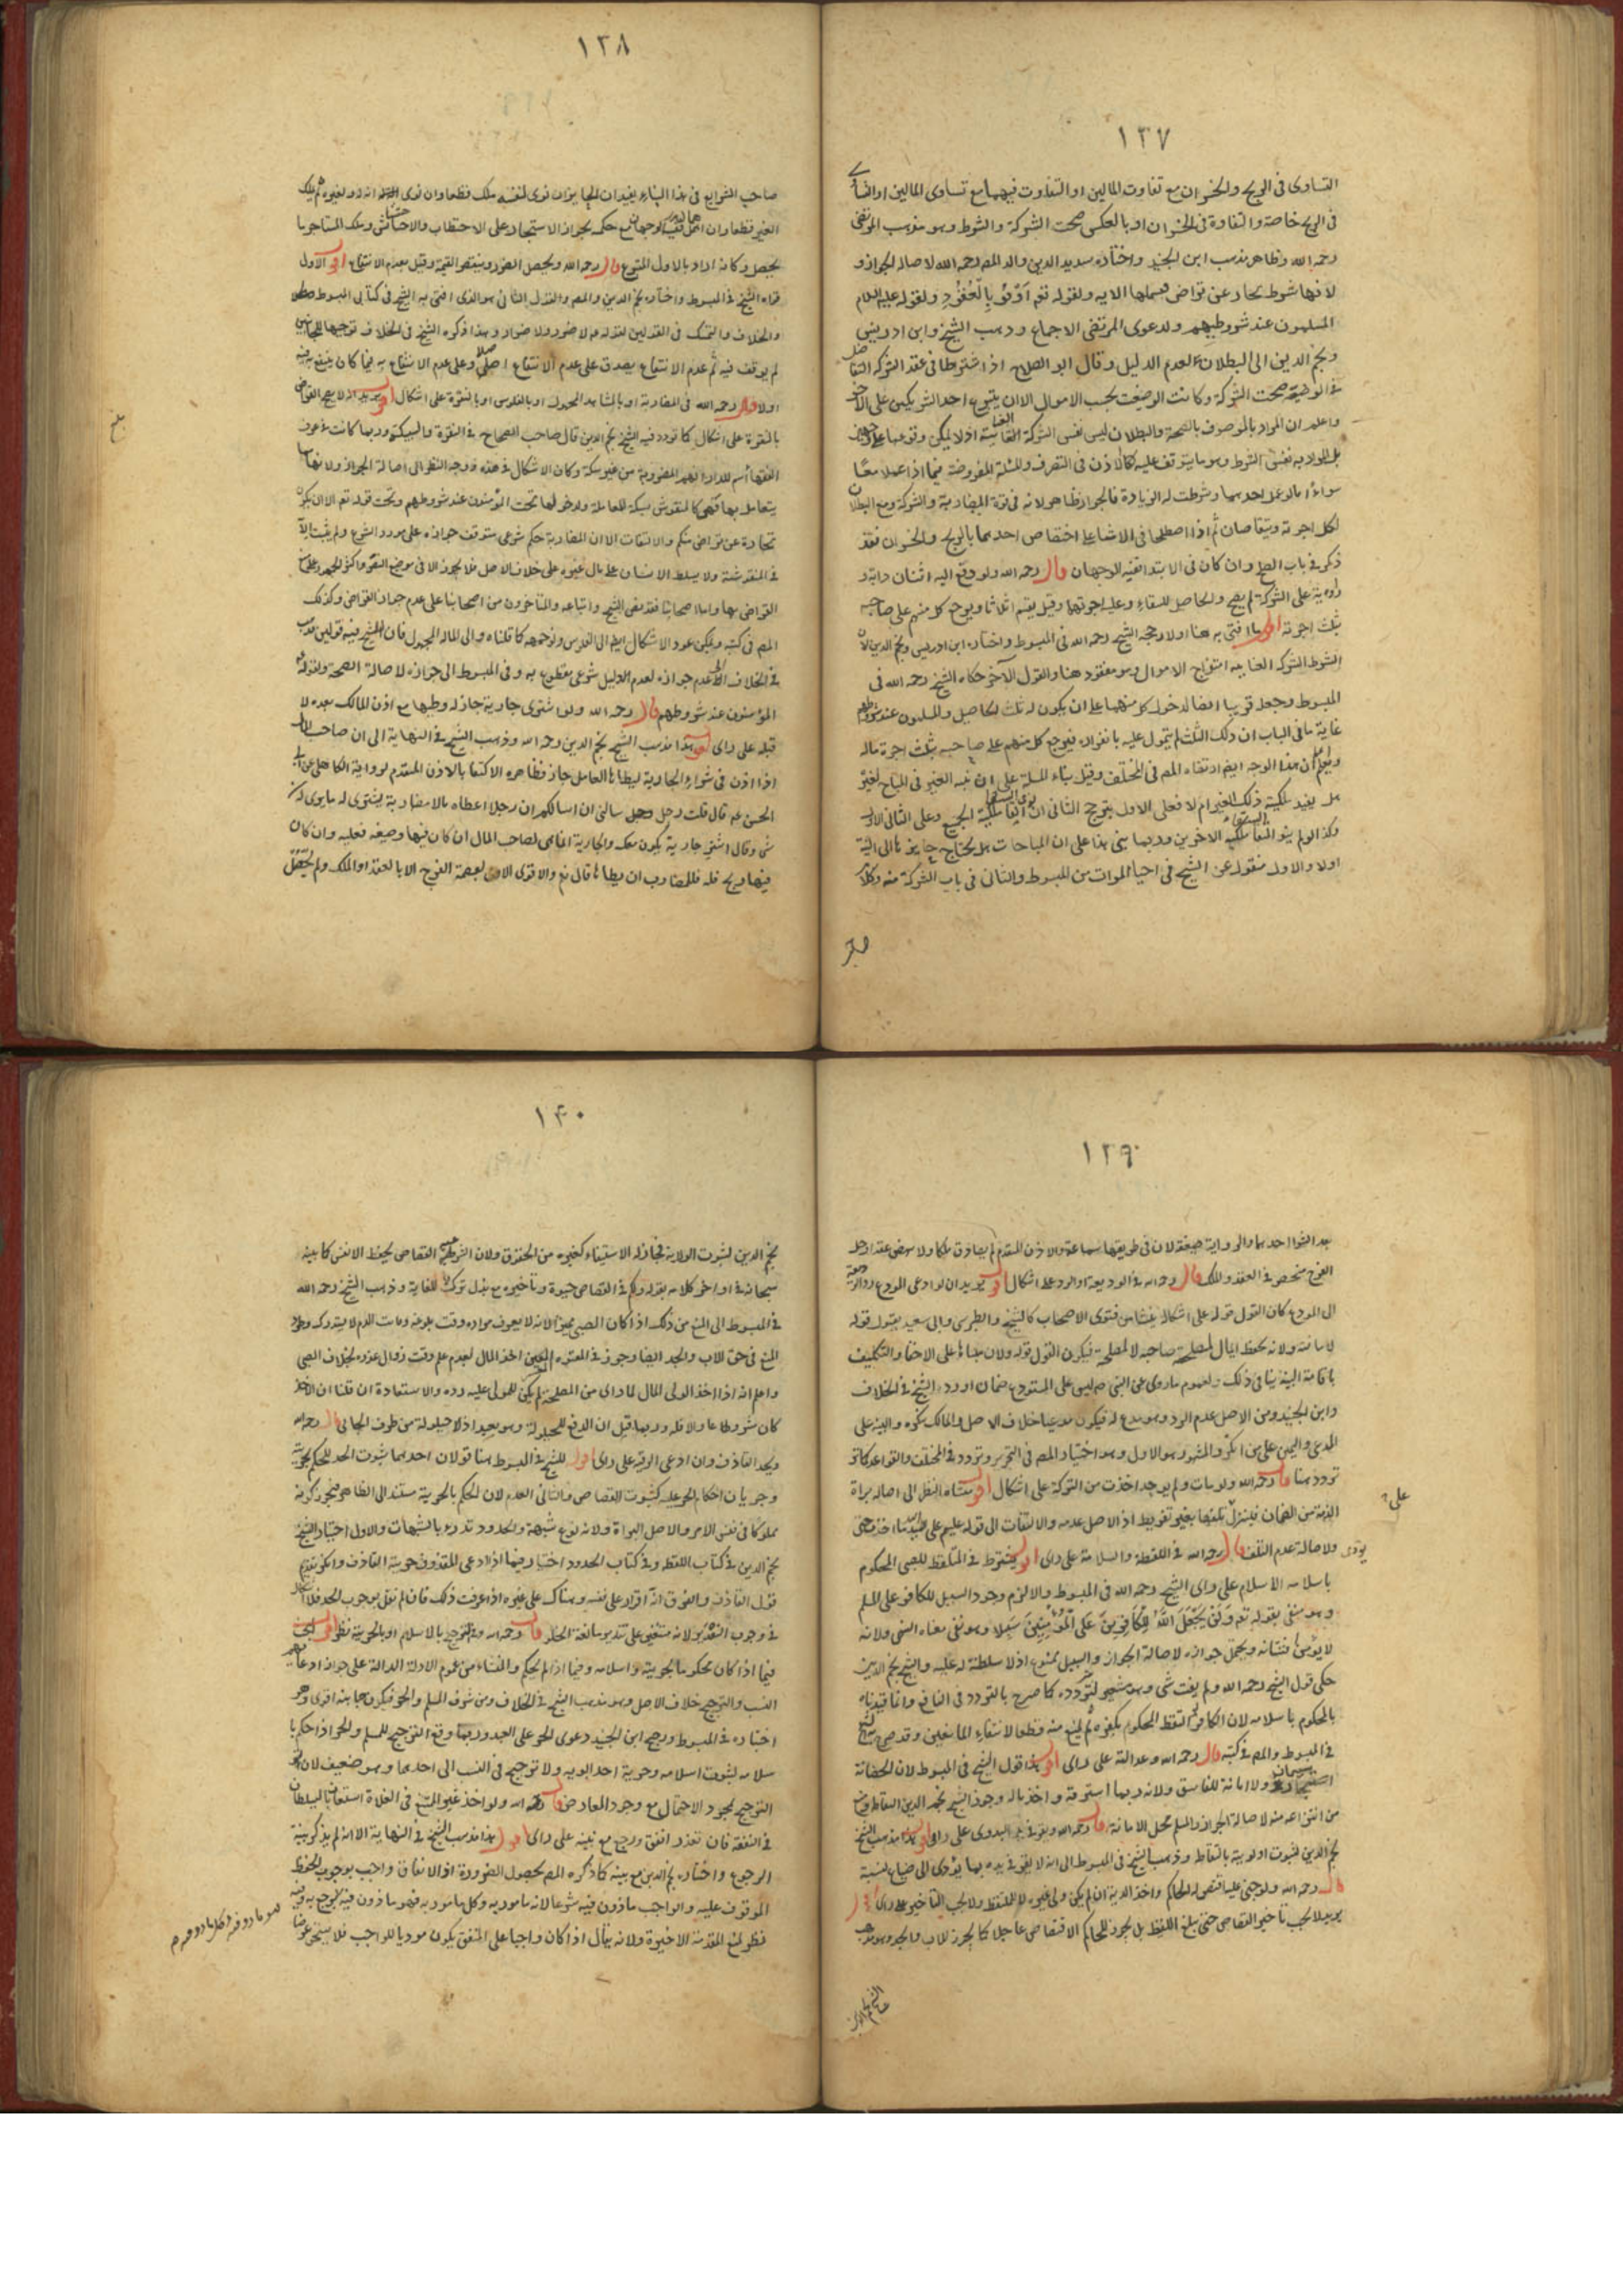 ١٣٧
التساوى فى الربح والخسران مع تفاوت المالين او التفاوت فيهما مع تساوى المالين او التساوى
فى الربح خاصة والتفاوة فى الخسران او بالعكس صحت الشركة والشرط وهو مذهب المرتضى
رحمه الله وظاهر مذهب ابن الجنيد واختاره سديد الدين والد المصر رحمه الله لاصالة الجواز و
لانها شرط تجارة عن تراض فيشملها الايه ولقوله تعم اَوْفُوا بِالْعُقُوْدِ ولقوله عليه السلام
المسلمون عند شروطهم ولدعوى المرتضى الاجماع وذهب الشيخ وابن ادريس
ونجم الدين الى البطلان لعدم الدليل وقال ابو الصلاح اذا اشترطا فى عقد الشركه التفاضل
فى الوضيعة صحت الشركة وكانت الوضيعة بحسب الاموال الا ان يتبرع احد الشريكين على الاخر
واعلم ان المراد بالموصوف بالصحة والبطلان ليس نفس الشركة العنانية اذ لا يمكن وقوعها على وجهين
بل المراد به نفس الشرط وما يتوقف عليه كالاذن فى التصرف والمسئلة المفروضة فيما اذا عملا معًا
سواءً اما لو عمل احدهما وشرطت له الزيادة فالجواز ظاهر لانه فى قوة المضاربة والشركة ومع البطلان
لكل اجرته ويتقاصان ثم اذا اصطلحا فى الاثناء على اختصاص احدهما بالربح والخسران فقد
ذكر فى باب الصلح وان كان فى الابتدا ففيه الوجهان قال رحمه الله ولو دفع اليه اثنان دابة و
راوية على الشركة لم يصح والحاصل للسقاء وعليه اجرتهما وقيل يقسم اثلاثا ويرجع كل منهم على صاحبه
بثلث اجرته اقول ما افتى به هنا اولا رجحه الشيخ رحمه الله فى المبسوط واختاره ابن ادريس ونجم الدين لان
الشرط الشركه العنانيه امتزاج الاموال وهو مفقود هنا والقول الآخر حكاه الشيخ رحمه الله فى
المبسوط وجعله قريبا ايضا لدخول كل منهما على ان يكون له ثلث الحاصل والمسلمون عند شروطهم
غاية ما فى الباب ان ذلك الثلث لم يتمول عليه بانفراده فيرجع كل منهم على صاحبه بثلث اجرة ماله
ويعلم ان هذا الوجه ايضم ارتضاه المصر فى المختلف وقيل بناء المسئلة على ان نية الغير فى المباح لغير
هل يفيد ملكية ذلك الغير ام لا فعلى الاول يترجح الثانى ان نوى السقاء ملكية الجميع وعلى الثانى الاول
وكذا لو لم ينو السقاء ملكية الاخرين وربما بنى هذا على ان المباحات هل يحتاج حايزها الى النية
اولا والاول منقول عن الشيخ فى احياء الموات من المبسوط والثانى فى باب الشركة منه وكلام
صاحب
١٣٨
صاحب الشرايع فى هذا البناء يفيد ان الحايز ان نوى لنفسه ملك قطعا وان نوى انه له ولغيره لم يملك
الغير قطعا وان اهمل ففيه الوجهان مع حكمه بجواز الاستيجار على الاحتطاب والاحتشاش ويملك المستاجر ما
يحصل وكانه اراد بالاول المتبرع قال رحمه الله ويحصل الضرر بنقص القيمة وقيل بعدم الانتفاع اقول الاول
قواه الشيخ فى المبسوط واختاره نجم الدين والمصر والقول الثانى هو الذى افتى به الشيخ فى كتابى المبسوط
والخلاف والتمسك فى القولين لقوله عم لا ضرر ولا ضرار وهذا ذكره الشيخ فى الخلاف توجيها للجانبين
لم يوقف فيه ثم عدم الانتفاع يصدق على عدم الانتفاع اصلا وعلى عدم الانتفاع به فيما كان ينتفع به فيه
اولا قال رحمه الله فى المضاربة او بالمشاهد المجهول او بالفلوس او بالنقرة على اشكال اقول يريد انه لا يصح القراض
بالنقرة على اشكال كما تردد فيه الشيخ نجم الدين قال صاحب الصحاح فى النقرة والسبيكة وربما كانت فى عرف
الفقهاء اسم للدراهم المضروبة من غير سكة وكان الاشكال فى هذه ووجه النظر الى اصالة الجواز ولانها
يتعامل بها فهى كالنقوش بسكة المعاملة ولدخولها تحت المؤمنون عند شروطهم وتحت قوله تعم الا ان تكون
تجارة عن تراض منكم والالتفات الا ان المضاربة حكم شرعى متوقف جوازه على مورد الشرع ولم يثبت الا
فى المنقوشة ولا يسلط الانسان على مال غيره على خلاف الاصل فلا يجوز الا فى موضع النص
القراض بها واما اصحابنا فقد نص الشيخ واتباعه والمتاخرون من اصحابنا على عدم جواز القراض وكذلك
المصر فى كتبه ويمكن عود الاشكال ايضم الى الفلوس كما قلناه والى المال المجهول فان للشيخ فيه قولين
فى الخلاف عدم جوازه لعدم الدليل شرعى مقطوع به وفى المبسوط الى جوازه لاصالة الصحة ولقوله
المؤمنون عند شروطهم قال رحمه الله ولو اشترى جارية جاز له وطيها مع اذن المالك بعده لا
قبله على راى اقول هذا مذهب الشيخ نجم الدين رحمه الله وذهب الشيخ فى النهاية الى ان صاحب المال
اذا اذن فى شراء الجارية ليطاها العامل جاز فظاهره الاكتفا بالاذن المتقدم لرواية الكاهلى عن ابى
الحسن عم قال قلت رجل سالنى ان اسالكم ان رجلا اعطاه مالا مضاربة يشترى له ما يرى له
شى وقال اشتر جارية يكون معك والجارية انما هى لصاحب المال ان كان فيها وضيعه فعليه وان كان
فيها ربح فله فللمضارب ان يطاها قال نعم والاقوى الاول لعصمة الفرج الا بالعقد او الملك ولم يحصل
بلغ
١٣٩
بعد احدهما والرواية ضعيفة لان فى طريقها سماعة والاذن المتقدم لم يصادف ملكا ولا
الفرج منحصر فى العقد والملك قال رحمه الله فى الوديعة او الرد على اشكال اقول يريد ان لو ادعى المودع رد الوديعة
الى المودع كان القول قوله على اشكال ينشا من فتوى الاصحاب كالشيخ والطبرسى وابى سعيد بقبول قوله
لامانته ولانه يحفظ المال لمصلحة صاحبه لا لمصلحته فيكون القول قوله ولان بناءها على الاخفا والتكليف
باقامة البينة ينافى ذلك ولعموم ما روى عن النبى صم ليس على المستودع ضمان اورده الشيخ فى الخلاف
وابن الجنيد ومن الاصل عدم الرد وهو مدع له فيكون مدعيا خلاف الاصل والمالك منكره والبينة على
المدعى واليمين على من انكر والمشهور هو الاول وهو اختيار المصر فى التحرير وتردد فى المختلف والقواعد كما
تردد هنا قال رحمه الله ولو مات ولم يوجد اخذت من التركة على اشكال اقول منشاه النظر الى اصالة براءة
الذمة من الضمان فينزل تلفها بغير تفريط اذ الاصل عدمه والالتفات الى قوله عليم على اليد ما اخذت حتى
تؤدى ولاصالة عدم التلف قال رحمه الله فى اللقطة والسلامة على راى اقول يشترط فى الملتقط للصبى المحكوم
باسلامه الاسلام على راى الشيخ رحمه الله فى المبسوط والا لزم وجود السبيل للكافر على المسلم
وهو منفى بقوله تعم وَلَنْ يَجْعَلَ اللهُ لِلْكَافِرِيْنَ عَلَى الْمُؤْمِنِيْنَ سَبِيْلا وهو نفى معناه النهى ولانه
لا يؤمن افتتانه ويحتمل جوازه لاصالة الجواز والسبيل ممنوع اذ لا سلطنة له عليه والشيخ نجم الدين
حكى قول الشيخ رحمه الله ولم يفت بشى وهو مشعر بتردده كما صرح بالتردد فى النافع وانما قيدناه
بالمحكوم باسلامه لان الكافر لو التقط المحكوم بكفره لم يمنع منه قطعا لانتفاء المانعين وقد صرح به الشيخ
فى المبسوط والمصر فى كتبه قال رحمه الله وعدالته على راى اقول هذا قول الشيخ فى المبسوط لان الحضانة
استيمان ولا امانة للفاسق ولانه ربما استرقه واخذ ماله وجوز الشيخ نجم الدين التقاطه ومنع
من انتزاعه منه لاصالة الجواز والمسلم محل الامانة قال رحمه الله ويقر فى يد البدوى على راى اقول هذا مذهب الشيخ
نجم الدين لثبوت اولويته بالتقاط وذهب الشيخ فى المبسوط الى انه لا يقر فى يده بما يؤدى الى ضياع نسبه
قال رحمه الله ولو جنى عليه اقتص له الحاكم واخذ الدية ان لم يكن ولى غيره لا الملتقط ولا يجب التاخير على راى اقول
يريد لا يجب تاخير القصاص حتى يبلغ اللقيط بل يجوز للحاكم الاقتصاص عاجلا كما يجوز للاب والجد وهو مذهب
١٤٠
نجم الدين لثبوت الولاية فجاز له الاستيفاء كغيره من الحقوق ولان القصاص يحفظ الانفس كما بينه
سبحانه فى اواخر كلامه بقوله ولكم فى القصاص حيوة وتاخيره مع بذل للغاية وذهب الشيخ رحمه الله
فى المبسوط الى المنع من ذلك اذا كان الصبى مميزا لانه لا يعرف مراده وقت بلوغه
المنع فى حق الاب والجد ايضا وجوز فى المعتوه اخذ المال لعدم علم وقت زوال عذره بخلاف الصبى
واعلم انه اذا اخذ الولى المال لما راى من المصلحة لم يكن للمولى عليه رده والاستعادة ان قلنا ان الاخذ
كان مشروطا والا فله وربما قيل ان الدفع للحيلولة وهو بعيد اذ لا حيلولة من طرف الجانى قال رحمه الله
ويحد القاذف وان ادعى الرقية على راى اقول للشيخ فى المبسوط هنا قولان احدهما ثبوت الحد للحكم بحريته
وجريان احكام الحر عليه كثبوت القصاص والثانى العدم لان الحكم بالحرية مستند الى الظاهر فيجوز كونه
مملوكا فى نفس الامر والاصل البراءة ولانه نوع شبهة والحدود تدرء بالشبهات والاول اختيار الشيخ
نجم الدين فى كتاب اللقطة وفى كتاب الحدود اختار فيما اذا ادعى المقذوف حرية القاذف وانكر تقديم
قول القاذف والفرق انه اقرار على نفسه وهناك على غيره اذا عرفت ذلك فان لم نقل بوجوب الحد فلا اشكال
فى وجوب التعزير لانه منتفى على تقدير سالفة الحد قال رحمه الله وفى الترجيح بالاسلام او بالحرية نظر اقول البحث
فيما اذا كان محكوما بحريته واسلامه وفيما اذا لم يحكم والمنشاء من عموم الادلة الدالة على جواز ادعائهم
النسب والترجيح خلاف الاصل وهو مذهب الشيخ فى الخلاف ومن شرف المسلم والحر فيكون جانبه اقوى وهو
اختياره فى المبسوط ورجح ابن الجنيد دعوى الحر على العبد وربما وقع الترجيح للمسلم والحر اذا حكم با
سلامه لثبوت اسلامه وحرية احد ابويه ولا ترجيح فى النسب الى احدهما وهو ضعيف لان
الترجيح بمجرد الاحتمال مع وجود المعارض قال رحمه الله ولو اخذ غير الممتنع فى الفلاة استعان بالسلطان
فى النفقة فان تعذر انفق ورجع مع نيته على راى اقول هذا مذهب الشيخ فى النهاية الا انه لم يذكر نية
الرجوع واختاره نجم الدين مع نيته كما ذكره المصر لحصول الضرورة اذ الانفاق واجب لوجوب الحفظ
الموقوف عليه والواجب ماذون فيه شرعا لانه مامور به وكل مامور به فهو ماذون فيه
فظر لمنع المقدمة الاخيرة ولانه يقال اذا كان واجبا على المنفق يكون موديا للواجب فلا يستحق عوضا